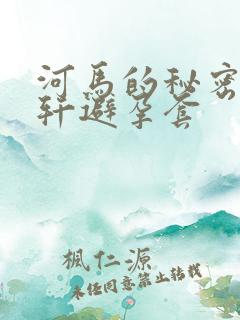 河馬的秘密
轩避孕套
楓仁源
未经同意禁止转载